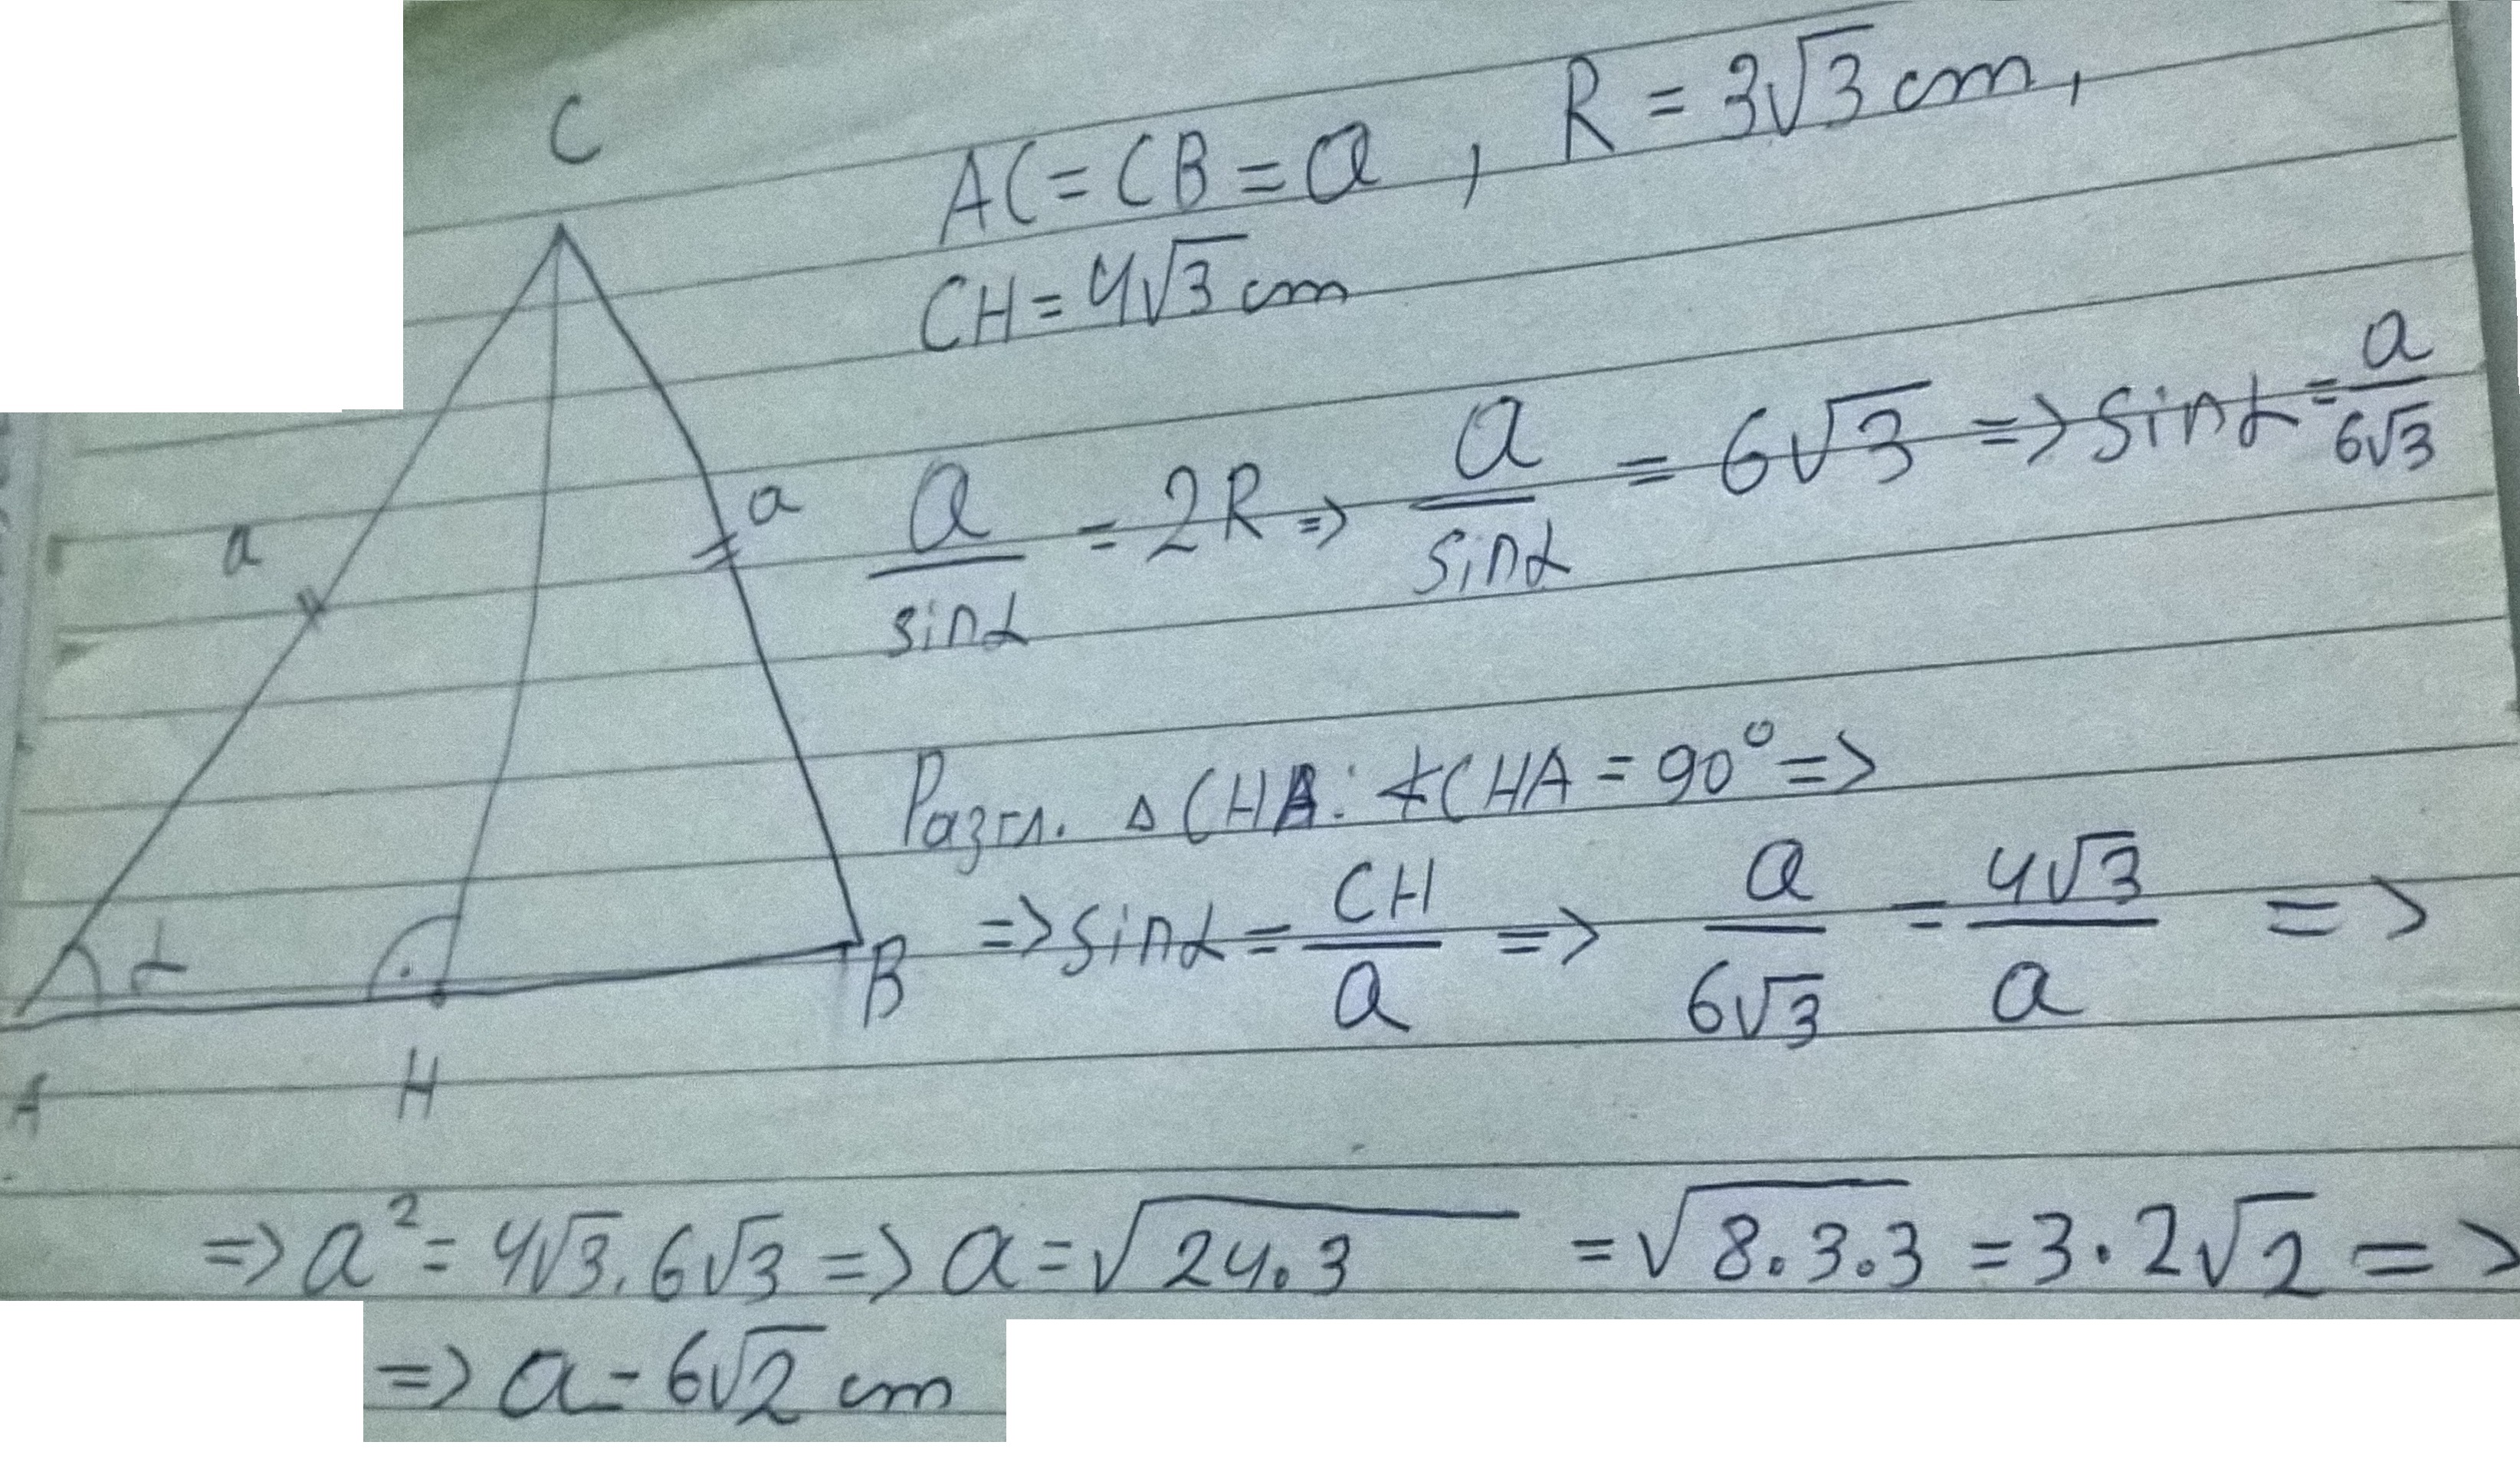 C
AC = CB = a , R = 3√3 cm,
CH = 4√3 cm
a
a
a/sinα = 2R => a/sinα = 6√3 => sinα = a/6√3
Разгл. △CHA: ∢CHA = 90° =>
=> sinα = CH/a => a/6√3 = 4√3/a =>
α
B
A
H
=> a² = 4√3 . 6√3 => a = √24.3 = √8.3.3 = 3.2√2 =>
=> a = 6√2 cm